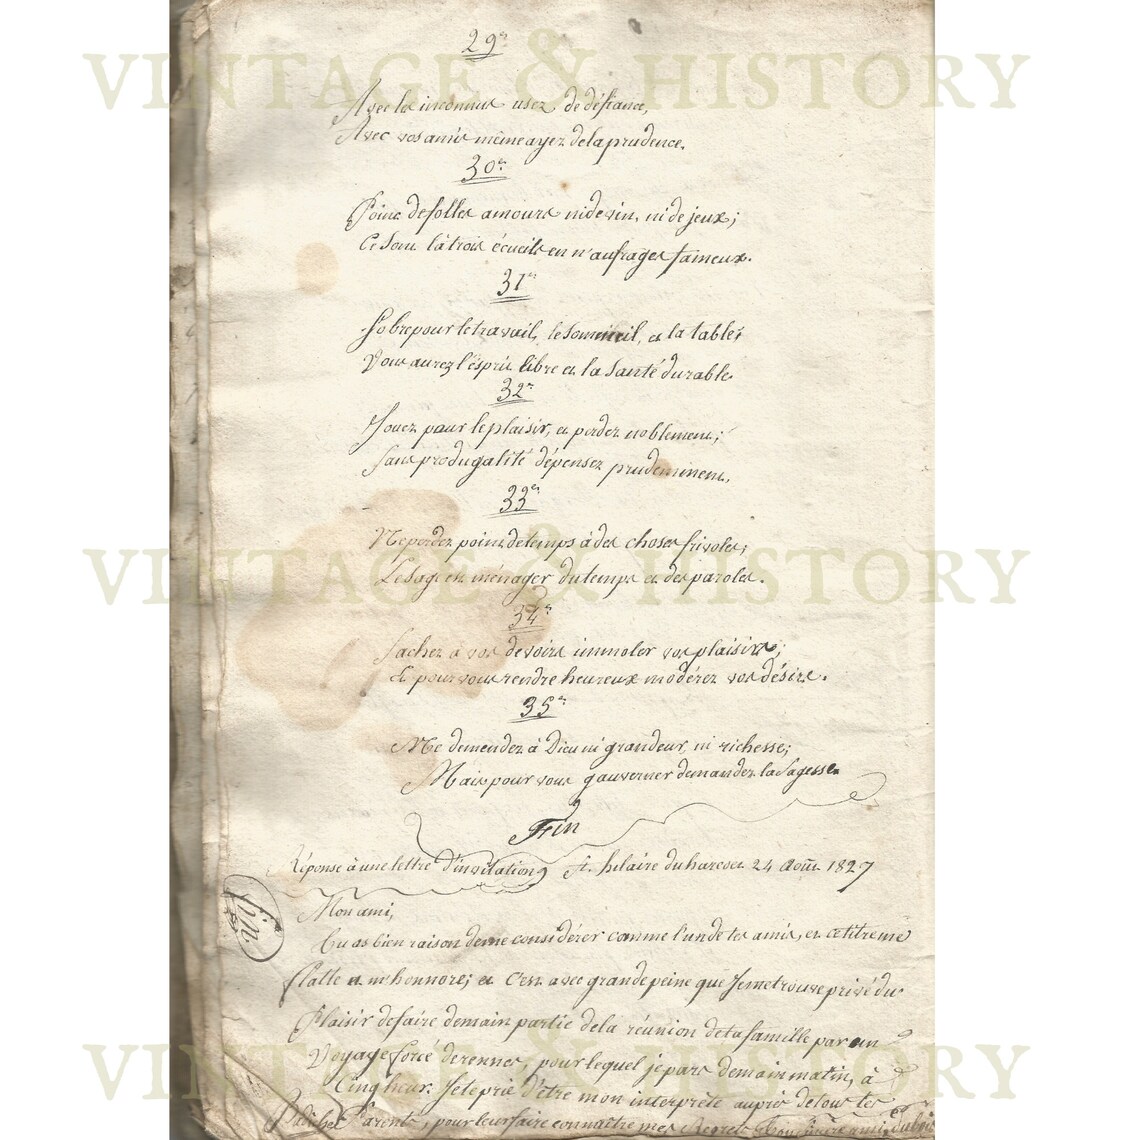 VINTAGE & HISTORY
29e.
Avec les inconnus usez de défiance,
Avec vos amis même ayez de la prudence.
30e.
Point de folles amours ni de vin, ni de jeux;
Ce sont là trois écueils en naufrages fameux.
31e.
Sobre pour le travail, le sommeil, et la table;
Vous aurez l'ésprit libre et la santé durable
32e
Jouez pour le plaisir, et perdez noblement;
Sans produgalité dépensez prudeminent,
33e.
Ne perdez point de temps à des choses frivoles;
Le sage est ménager du temps et des paroles.
VINTAGE & HISTORY
34e
Sachez à vos devoirs immoler vos plaisirs;
Et pour vous rendre heureux modérez vos désirs.
35e
Ne demendez à Dieu ni grandeur, ni richesse;
Mais pour vous gauverner demandez la sagesse
Fin
Réponse à une lettre d'invitation, St. hilaire du harcoet 24 Août 1827
fin
Mon ami,
Tu as bien raison de me considérer comme l'un de tes amis, et ce titre me
flatte et m'honnore; et c'est avec grande peine que je me trouve privé du
Plaisir de faire demain partie de la réunion de ta famille par un
Voyage forcé de rennes, pour lequel je pars demain matin, à
VINTAGE & HISTORY
Cinq heur. Je te prie d'être mon interprète auprès de tous tes
Parents, pour leur faire connaître mes Regrets